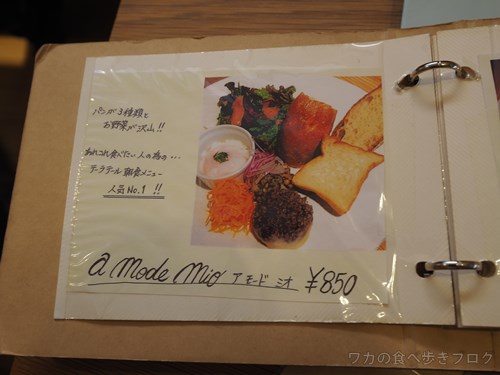 パンが3種類と
お野菜が沢山!!
あれこれ食べたい人の為の...
テーラテール朝食メニュー
人気No.1 !!
a Mode Mio アモード ミオ ¥850
ワカの食べ歩きブログ